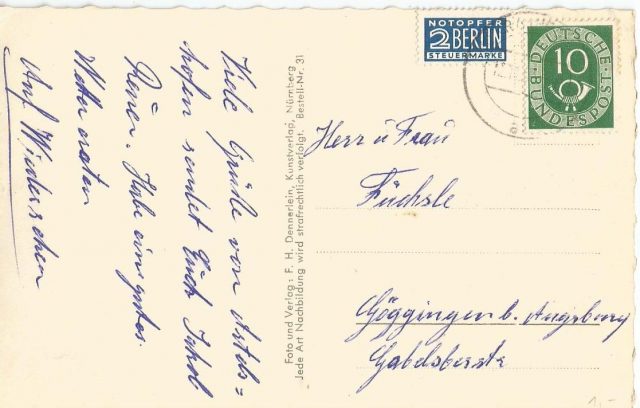 NOTOPFER
2 BERLIN
STEUERMARKE
DEUTSCHE
BUNDESPOST
10
Viele Grüße von
sendet Euch
Habe ein gutes
Wetter
Auf Wiedersehen
Foto und Verlag: F. H. Dennerlein, Kunstverlag, Nürnberg
Jede Art Nachbildung wird strafrechtlich verfolgt. Bestell-Nr. 31
Herr u Frau
Füchsle
Göggingen b. Augsburg
Gabelsberstr